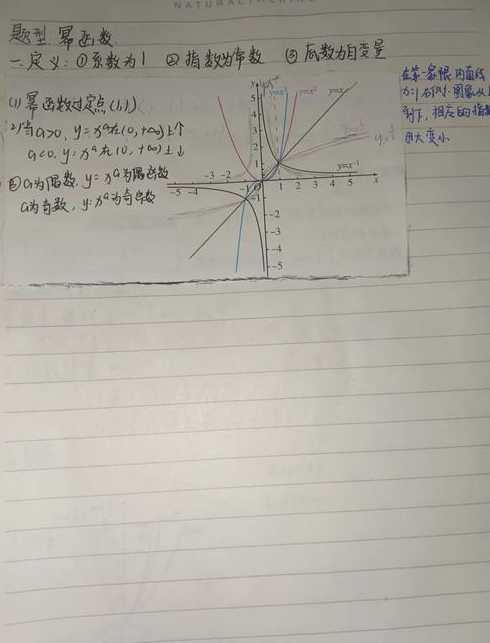 NATURAL
题型 幂函数
一、定义:①系数为1 ②指数为常数 ③底数为自变量
(1) 幂函数过定点(1,1)
(2)当a>0, y=xᵃ在(0,+∞)上↑
a<0, y=xᵃ在(0,+∞)上↓
③a为偶数, y=xᵃ为偶函数
a为奇数, y=xᵃ为奇函数
在第一象限内直线
x=1右侧,图象从上
到下,相应的指数
由大变小
y
y=x³ y=x² y=x
y=x⁻¹
5
4
3
2
1
-5 -4 -3 -2 -1 O 1 2 3 4 5 x
-1
-2
-3
-4
-5